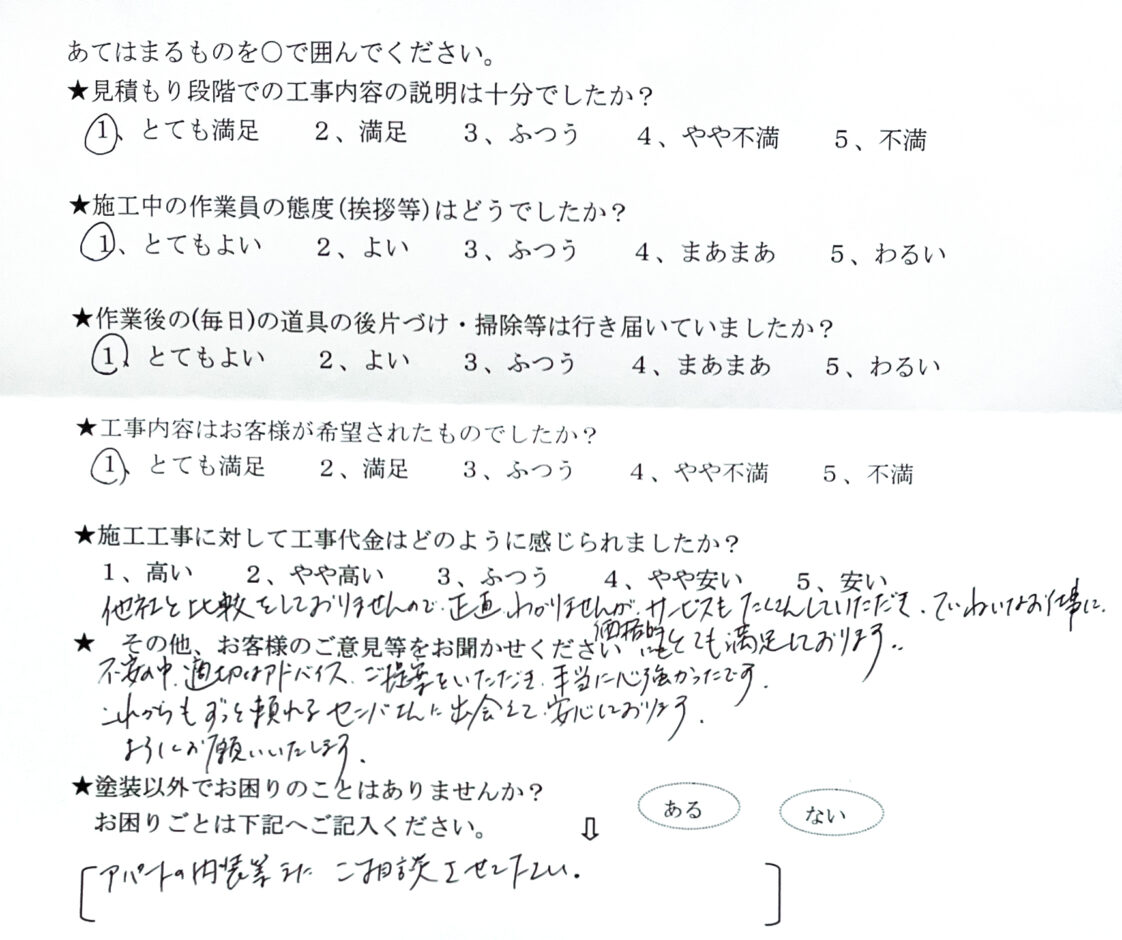 あてはまるものを○で囲んでください。
★見積もり段階での工事内容の説明は十分でしたか？
1、とても満足 2、満足 3、ふつう 4、やや不満 5、不満
★施工中の作業員の態度(挨拶等)はどうでしたか？
1、とてもよい 2、よい 3、ふつう 4、まあまあ 5、わるい
★作業後の(毎日)の道具の後片づけ・掃除等は行き届いていましたか？
1、とてもよい 2、よい 3、ふつう 4、まあまあ 5、わるい
★工事内容はお客様が希望されたものでしたか？
1、とても満足 2、満足 3、ふつう 4、やや不満 5、不満
★施工工事に対して工事代金はどのように感じられましたか？
1、高い 2、やや高い 3、ふつう 4、やや安い 5、安い
他社と比較をしておりませんので、正直わかりませんが、サービスもたくさんしていただき、ていねいなお仕事に、
価格的にもとても満足しております。
★ その他、お客様のご意見等をお聞かせください
不安の中、適切なアドバイス、ご提案をいただき、本当に心強かったです。
これからもずっと頼れるセンバさんに出会えて、安心しております。
ようにお願いいたします。
★塗装以外でお困りのことはありませんか？ ある ない
お困りごとは下記へご記入ください。 ⇩
アパートの内装等また ご相談させて下さい。